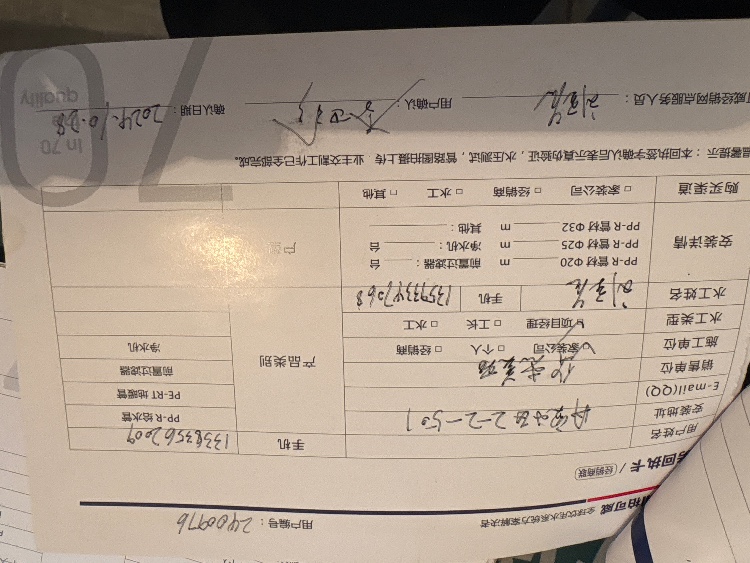 柏可威 全球饮用水系统方案解决者
用户编号：2400976
回执卡 / 经销商联
用户姓名 手机 13383562009
安装地址 2-2-501 PP-R 给水管
E-mail(QQ) PE-RT 地暖管
销售单位 产品类别 前置过滤器
施工单位 家装公司 □ 个人 □ 经销商 净水机
水工类型 项目经理 □ 工长 □ 水工
水工姓名 手机 13593347068
安装详情 PP-R 管材 Φ20 m 前置过滤器： 台
PP-R 管材 Φ25 m 净水机： 台
PP-R 管材 Φ32 m 其他：
购买渠道 □ 家装公司 □ 经销商 □ 水工 □ 其他
温馨提示：本回执签字确认后表示真伪验证，水压测试，管路图拍摄上传，业主交割工作已全部完成。
威经销网点服务人员： 用户确认： 确认日期：2024.10.28
In 70
quality
70